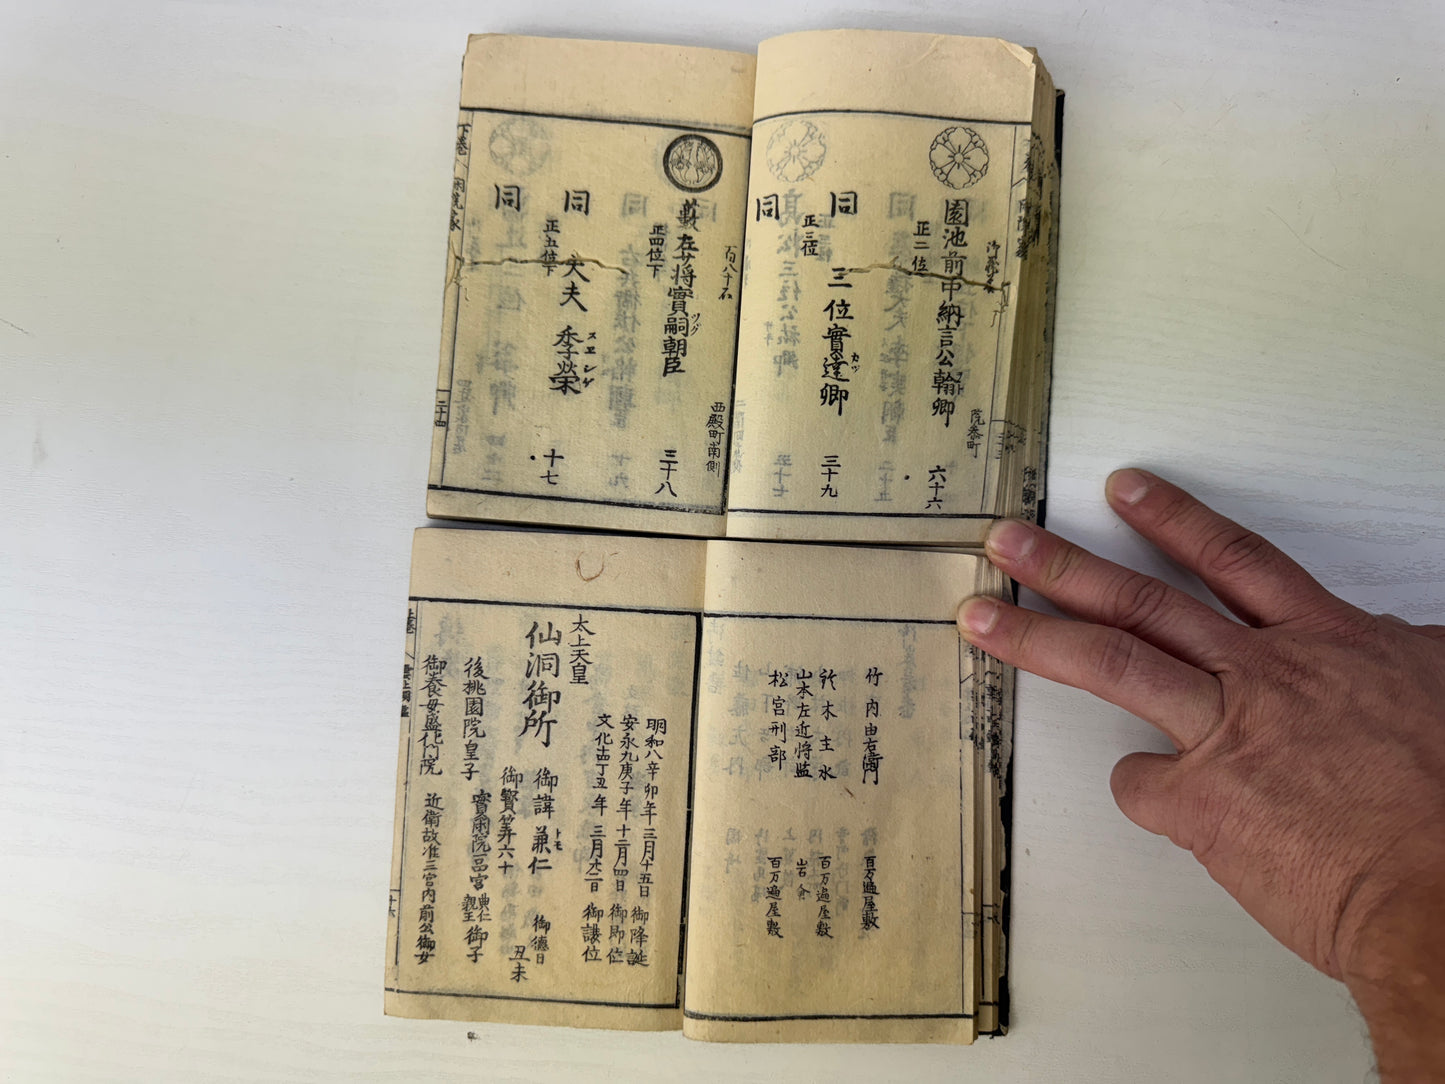 御藏米
園池前中納言公翰卿
フト
正二位
院參町
六十六
同
三位實遠卿
カツ
正三位
三十九
同
百八十石
藪左少将實嗣朝臣
ツグ
正四位下
西殿町南側
三十八
同
大夫季榮
スヱシゲ
正五位下
十七
同
下巻
二十四
竹内由右衛門
百万遍屋敷
鈴木主水
百万遍屋敷
山本左近将監
岩倉
松宮刑部
百万遍屋敷
明和八辛卯年三月十五日御降誕
安永九庚子年十二月四日御即位
文化十四丁丑年三月廿二日御譲位
太上天皇
仙洞御所
御諱兼仁
トモ
御德日
丑未
御寶筭六十
後桃園院皇子
實閑院一品宮
典仁
親王
御子
御養母盛化門院
近衛故准三宮内前公御女
上巻
雲上明鑑
十六